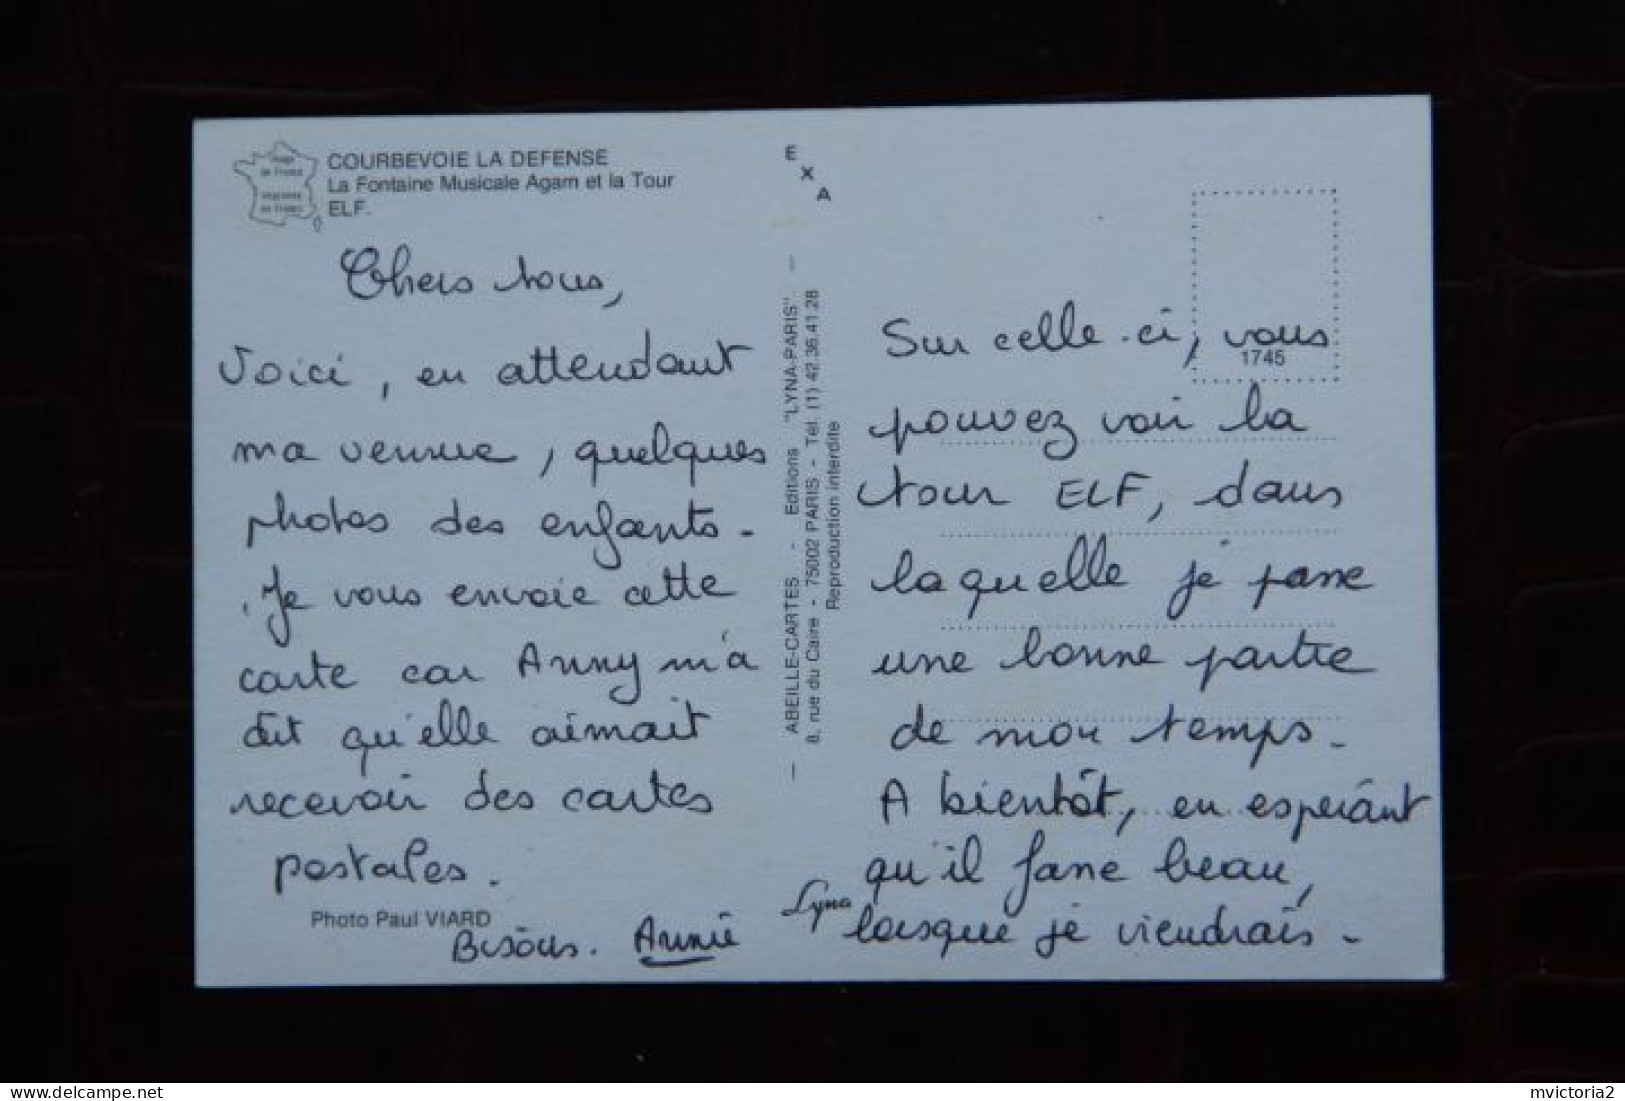 COURBEVOIE LA DEFENSE
La Fontaine Musicale Agam et la Tour
ELF.
Chers tous,
Voici, en attendant
ma venue, quelques
photos des enfants.
Je vous envoie cette
carte car Anny m'a
dit qu'elle aimait
recevoir des cartes
postales.
Photo Paul VIARD
Bisous. Annie
E
X
A
— ABEILLE-CARTES - Editions "LYNA-PARIS" —
8, rue du Caire - 75002 PARIS - Tél. (1) 42.36.41.28
Reproduction interdite
Lyna
1745
Sur celle-ci, vous
pouvez voir la
tour ELF, dans
laquelle je passe
une bonne partie
de mon temps.
A bientôt, en espérant
qu'il fasse beau,
lorsque je viendrais.
mvictoria2